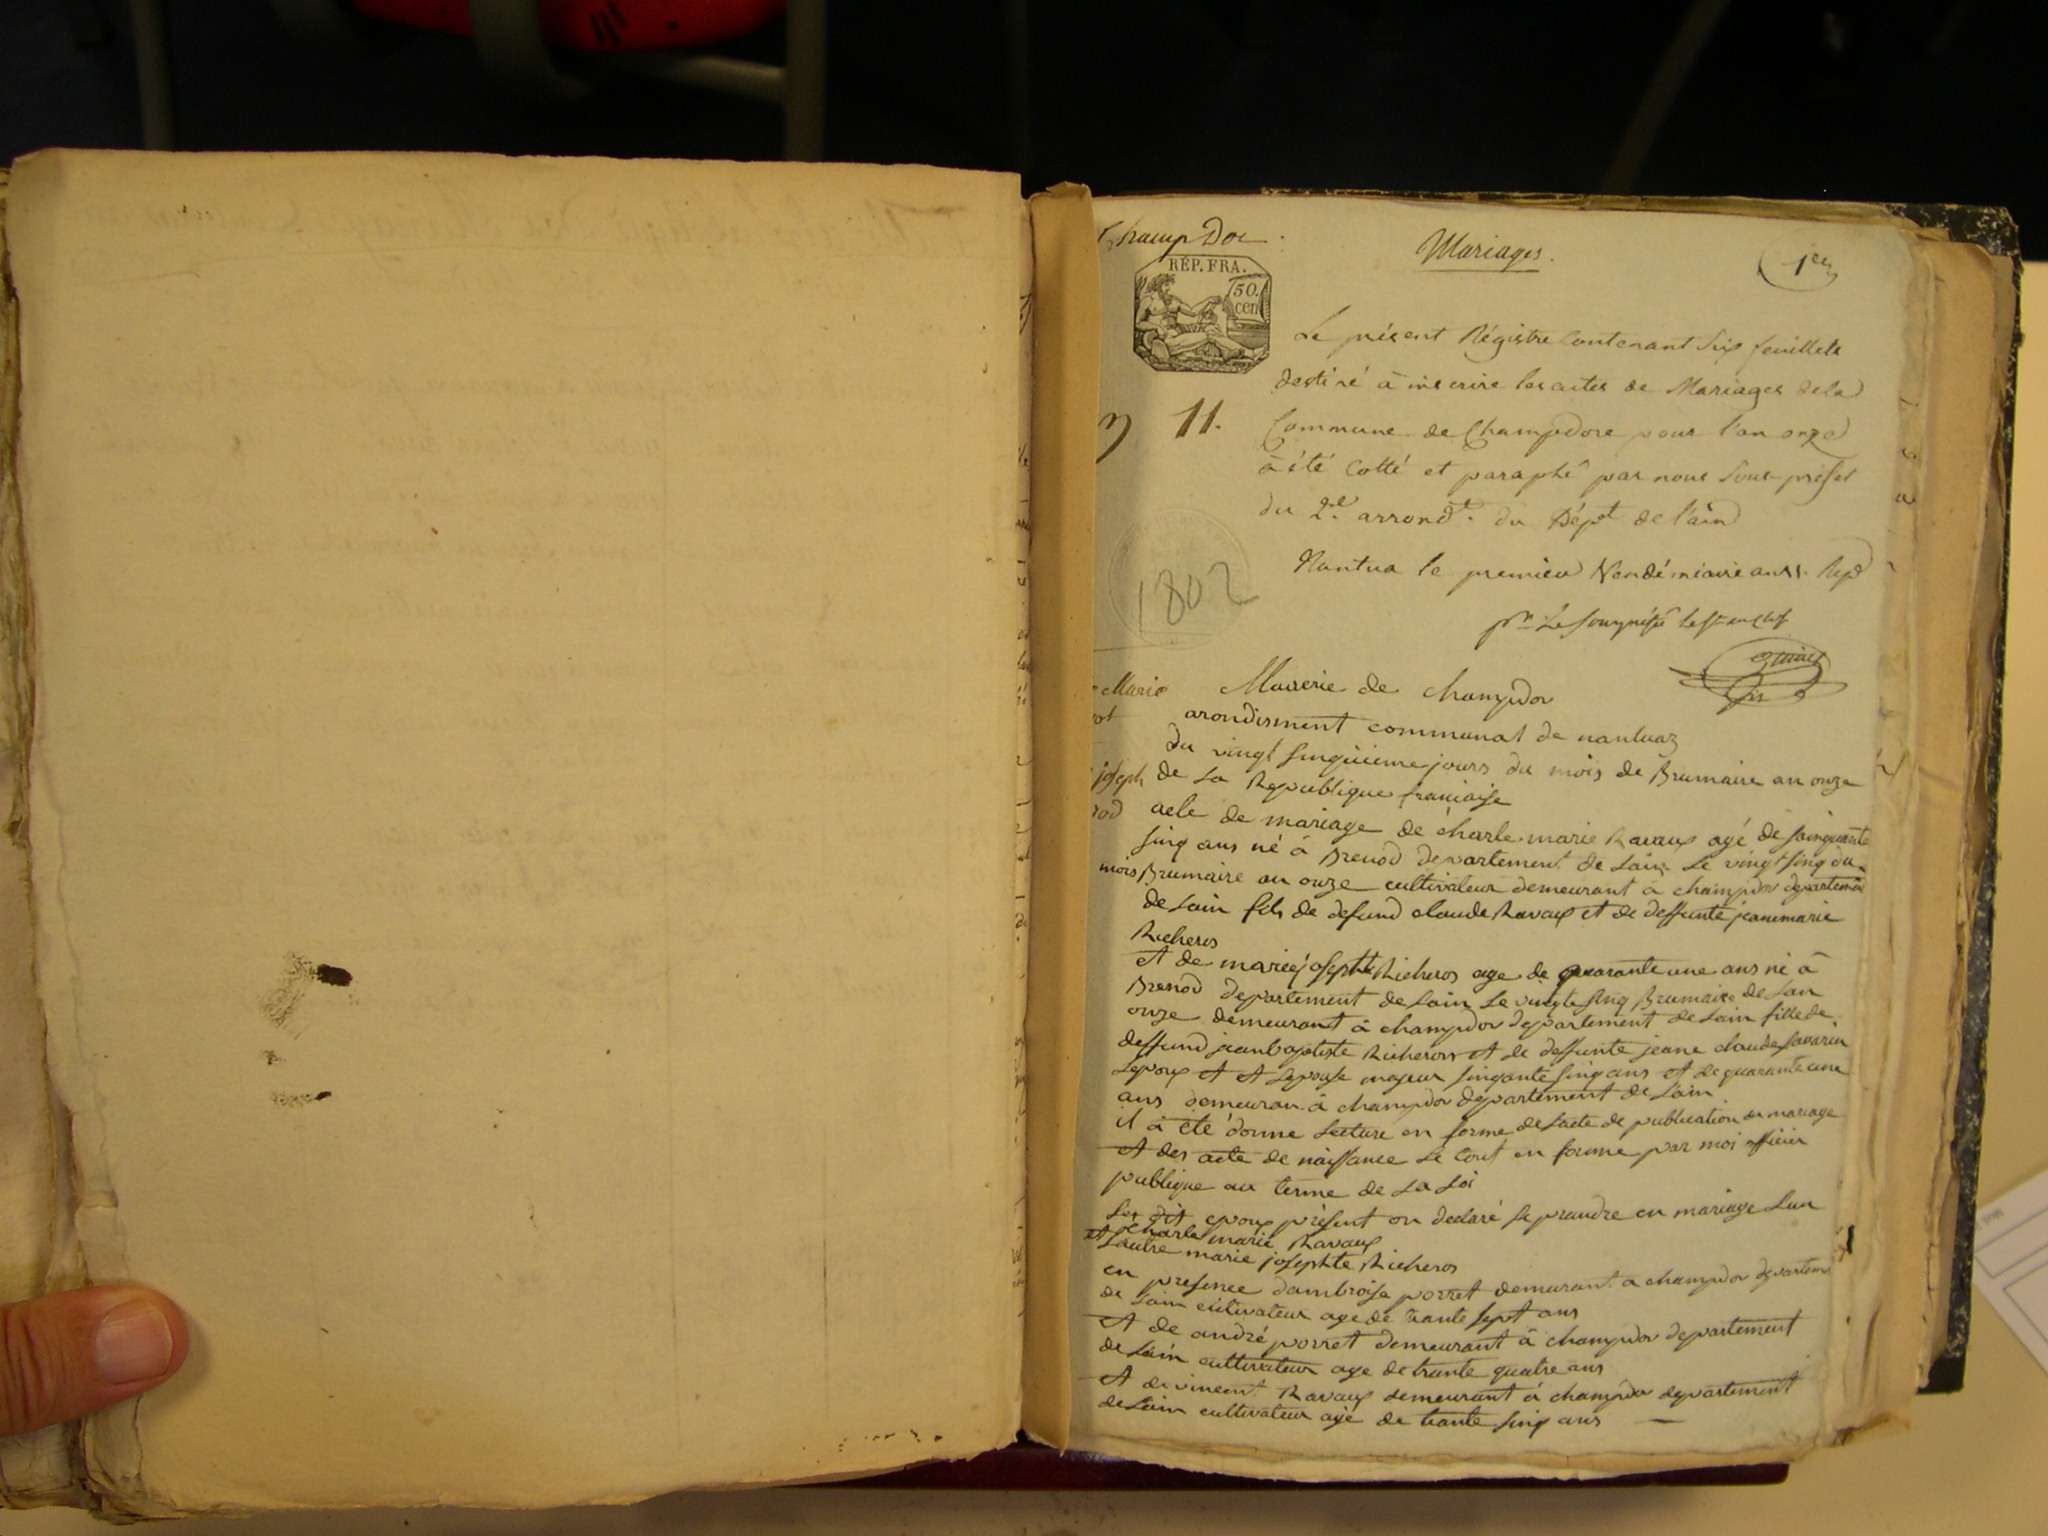 ChampDor.
Mariages.
1er
RÉP. FRA.
50.
cen
Le présent Régistre Contenant Six feuillets
destiné à inscrire les actes de Mariages de la
an 11.
Commune de Champdore pour l'an onze
à été Cotté et paraphé par nous Sous-préfet
du 2.e arrondt. du Dépt de l'ain
Nantua le premier Vendémiaire an 11. Rep
1802
Mairerie de champdor
arondisment communal de nantuaz
du vingt sinquieme jours du mois de Brumaire an onze
de La Republique francaise
Marie
joseph
acte de mariage de charle marie Ravaux agé de sainquante
sinq ans né à Brenod departement de Lain Le vingt sinq du
mois Brumaire an onze cultivateur demeurant à champdor departemen
de Lain fils de defund claude Ravaux et de deffunte jeanemarie
Richeros
et de marie josephte Richeros age de quarante une ans né à
Brenod departement de Lain Le vingte sinq Brumaire de Lan
onze demeurant à champdor departement de Lain fille de
deffund jeanbaptiste Richeros et de deffunte jeane claude savarin
Lepoux et et Lepouse majeur sinqante sinq ans et de quarante une
ans demeuran à champdor departement de Lain
il à été donne Lecture en forme de Lacte de publication de mariage
et des acte de naissance Le tout en forme par moi officier
publique au terme de La Loi
Les dit epoux présent on declaré se prandre en mariage Lun
charle marie Ravaux
et Lautre marie josephte Richeros
en presence dambroise porret demurant à champdor departem
de Lain cultivateur age de trante sept ans
et de andré porret demeurant à champdor departement
de Lain cultivateur age de trante quatre ans
et de vincent Ravaux demeurant à champdor departement
de Lain cultivateur agé de trante sinq ans —